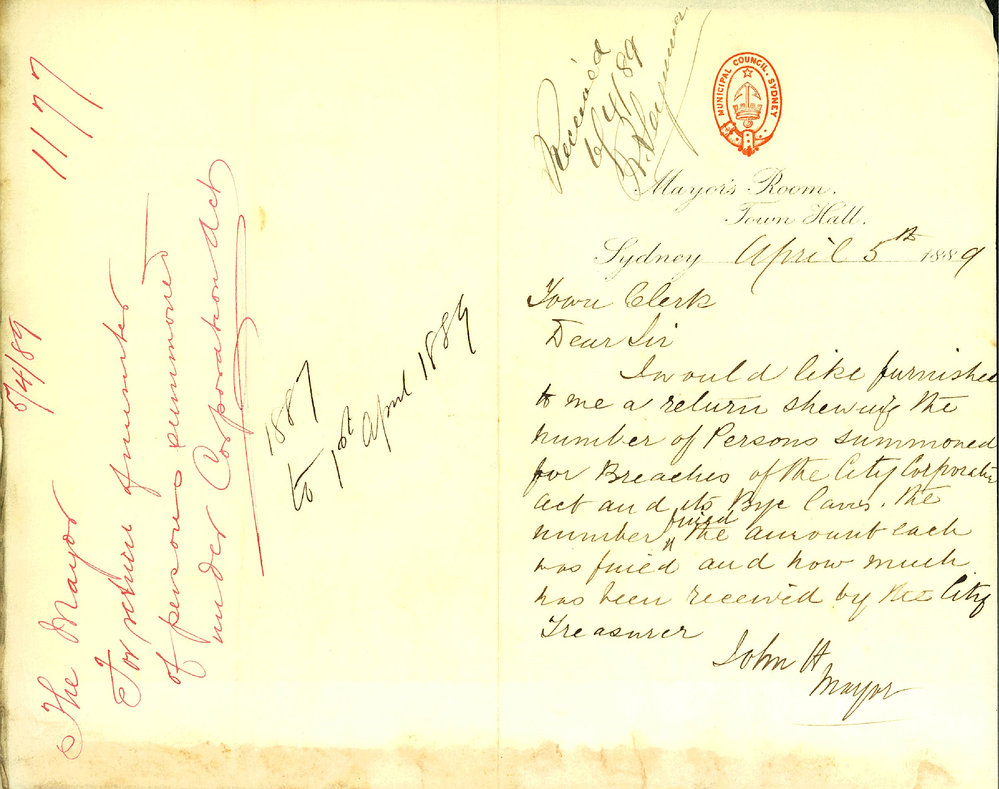 1177
5/4/89
The Mayor
For return of number
of persons summoned
under Corporation Act
1887
to 1st April 1889
Received
6/4/89
MUNICIPAL COUNCIL. SYDNEY
Mayor's Room.
Town Hall.
Sydney April 5th 1889
Town Clerk
Dear Sir
I would like furnished
to me a return shewing the
number of Persons summoned
for Breaches of the City Corporation
Act and its Bye Laws. The
number fined the amount each
was fined and how much
has been received by the City
Treasurer
John H
Mayor